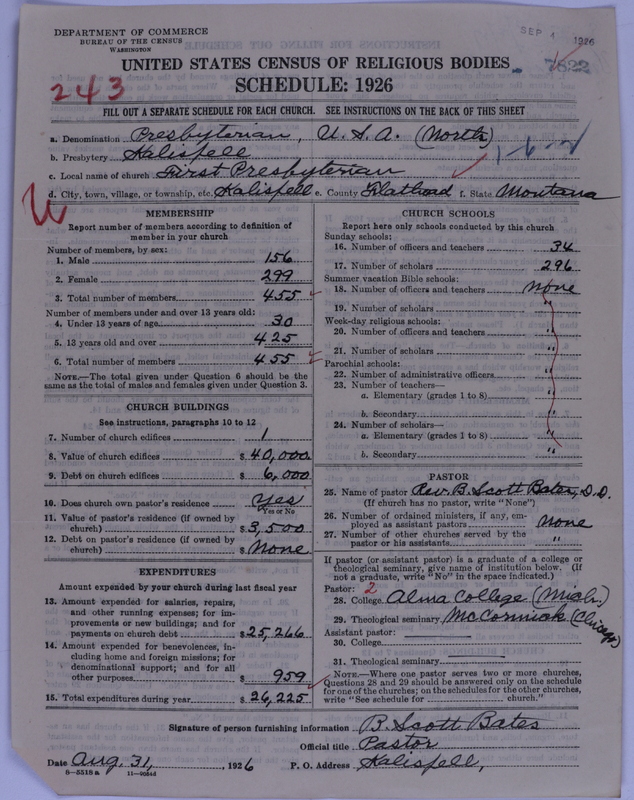 DEPARTMENT OF COMMERCE
BUREAU OF THE CENSUS
WASHINGTON
SEP 4 1926
7822
UNITED STATES CENSUS OF RELIGIOUS BODIES
243
SCHEDULE: 1926
FILL OUT A SEPARATE SCHEDULE FOR EACH CHURCH. SEE INSTRUCTIONS ON THE BACK OF THIS SHEET
a. Denomination Presbyterian, U.S.A. (North)
b. Presbytery Kalispell
1-6-2
c. Local name of church First Presbyterian
d. City, town, village, or township, etc. Kalispell e. County Flathead f. State Montana
MEMBERSHIP
Report number of members according to definition of
member in your church
Number of members, by sex:
1. Male 156
2. Female 299
3. Total number of members 455
Number of members under and over 13 years old:
4. Under 13 years of age 30
5. 13 years old and over 425
6. Total number of members 455
NOTE.—The total given under Question 6 should be the
same as the total of males and females given under Question 3.
CHURCH BUILDINGS
See instructions, paragraphs 10 to 12
7. Number of church edifices 1
8. Value of church edifices $ 40,000
9. Debt on church edifices $ 6,000
10. Does church own pastor's residence Yes
Yes or No
11. Value of pastor's residence (if owned by
church) $ 3,500
12. Debt on pastor's residence (if owned by
church) $ None
EXPENDITURES
Amount expended by your church during last fiscal year
13. Amount expended for salaries, repairs,
and other running expenses; for im-
provements or new buildings; and for
payments on church debt $ 25,266
14. Amount expended for benevolences, in-
cluding home and foreign missions; for
denominational support; and for all
other purposes $ 959
15. Total expenditures during year $ 26,225
CHURCH SCHOOLS
Report here only schools conducted by this church
Sunday schools:
16. Number of officers and teachers 34
17. Number of scholars 296
Summer vacation Bible schools:
18. Number of officers and teachers none
19. Number of scholars "
Week-day religious schools:
20. Number of officers and teachers "
21. Number of scholars "
Parochial schools:
22. Number of administrative officers "
23. Number of teachers—
a. Elementary (grades 1 to 8) "
b. Secondary "
24. Number of scholars—
a. Elementary (grades 1 to 8) "
b. Secondary "
PASTOR
25. Name of pastor Rev. B. Scott Bates, D.D.
(If church has no pastor, write "None")
26. Number of ordained ministers, if any, em-
ployed as assistant pastors None
27. Number of other churches served by the
pastor or his assistants "
If pastor (or assistant pastor) is a graduate of a college or
theological seminary, give name of institution below. (If
not a graduate, write "No" in the space indicated.)
Pastor: 2
28. College Alma College (Mich.)
29. Theological seminary McCormick (Chicago)
Assistant pastor:
30. College
31. Theological seminary
NOTE.—Where one pastor serves two or more churches,
Questions 28 and 29 should be answered only on the schedule
for one of the churches; on the schedules for the other churches,
write "See schedule for church."
Signature of person furnishing information B. Scott Bates
Official title Pastor
Date Aug. 31, 1926 P. O. Address Kalispell,
8—5518 a 11—9054d